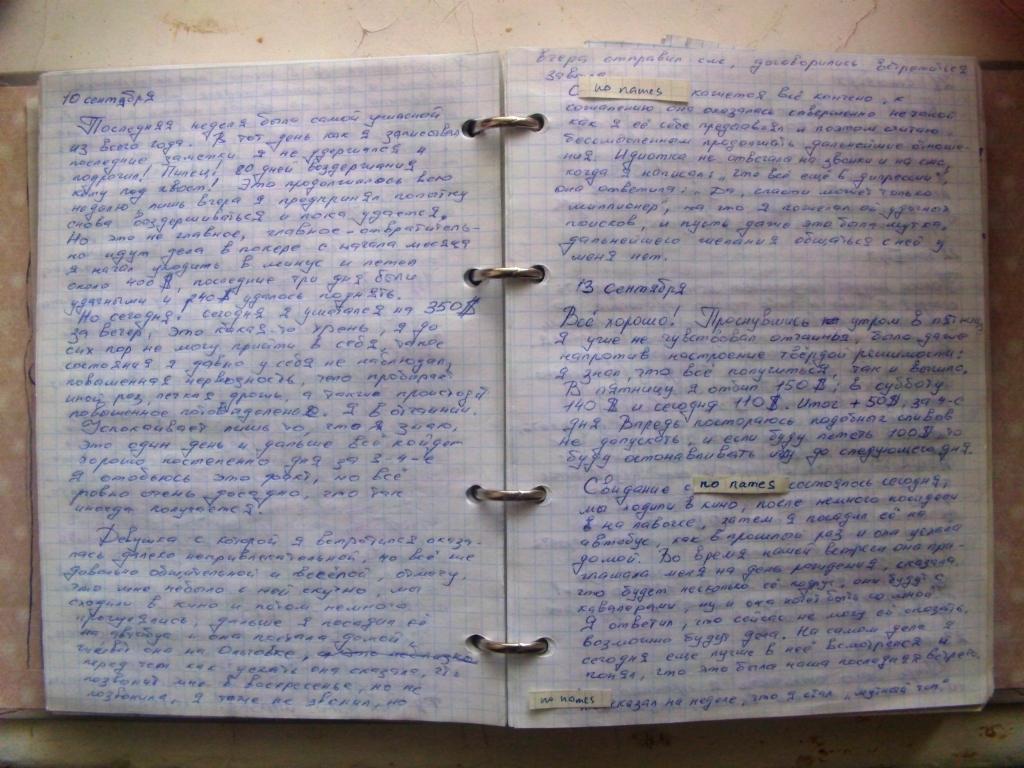 10 сентября
Последняя неделя была самой ужасной
из всего года. В тот день как я записовал
последние заметки я не удержался и
подрочил! Пипец! 20 дней воздержания
кату под хвост! Это продолжалось всю
неделю лишь вчера я предпринял попытку
снова воздерживаться и пока удаётся.
Но это не главное, главное - отвратитель-
но идут дела в покере с начала месяца
я начал уходить в минус и летел
около 400$, последние три дня были
удачными и 240$ удалось поднять.
Но сегодня! сегодня я умотался на 350$
за вечер, это какая-то хрень, я до
сих пор не могу прийти в себя, такое
состояния я давно у себя не наблюдал,
повышенная нервозность, тело пробирает
иной раз легкая дрожь, а также происходит
повышенное потовыделение. Я в отчаянии.
Успокаивает лишь то, что я знаю,
это один день и дальше всё пойдет
хорошо постепенно дня за 3-4-е
я отобьюсь это факт, но всё
ровно очень досадно, что так
иногда получается.
Девушка с которой я встретился оказа-
лась далеко непривлекательной, но всё же
довольно общительной и весёлой, отмечу,
что мне небыло с ней скучно, мы
сходили в кино и потом немного
прогулялись, дальше я посадил её
на автобус и она поехала домой
живёт она на Ольговке,
перед тем как уехать она сказала, что
позвонит мне в воскресенье, но не
позвонила, я тоже не звонил, но
вчера отправил смс, договорились встретиться
завтра.
С no names кажется всё кончено, к
сожалению она оказалась совершенно не такой
как я её себе представлял и поэтому считаю
бессмысленным продолжать дальнейшие отноше-
ния. Идиотка не отвечала на звонки и на смс,
когда я написал: "что всё ещё в депрессии",
она ответила: "Да, спасти может только
миллионер", на что я пожелал ей удачных
поисков, и пусть даже это была шутка,
дальнейшего желания общаться с ней у
меня нет.
13 сентября
Всё хорошо! Проснувшись утром в пятницу
я уже не чувствовал отчаянья, было даже
напротив настроение твёрдой решимости:
я знал, что всё получиться, так и вышло.
В пятницу я отбил 150$; в субботу
140$ и сегодня 110$. Итог +50$ за 4-е
дня. Впредь постораюсь подобных сливов
не допускать, и если буду лететь 100$, то
буду останавливать игру до следующего дня.
Свидание с no names состоялось сегодня,
мы ходили в кино, после немного посидели
в на лавочке, затем я посадил её на
автобус, как в прошлый раз и она уехала
домой. Во время нашей встречи она при-
глашала меня на день рождения, сказала
что будет несколько её подруг, они будут с
кавалерами, ну и она хочет быть со мной
Я ответил, что сейчас не могу ей сказать,
возможно будут дела. На самом деле я
сегодня еще лучше в неё всмотрелся и
понял, что это была наша последняя встреча.
no names сказал на неделе, что я стал "мутный тип"